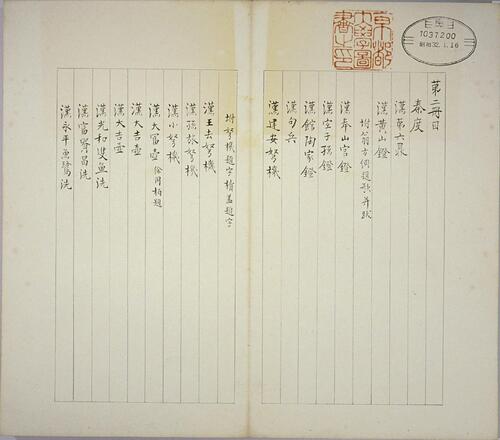 京都
大學圖
書之印
1037200
昭和32.1.16
第二冊目
秦度
漢第六鼎
漢黃山鐙
附翁方綱題歌并跋
漢奉山宮鐙
漢空于孫鐙
漢館陶家鐙
漢句兵
漢建安弩機
附弩機題字續蓋題字
漢王去弩機
漢孫於弩機
漢小弩機
漢大富壺 徐同柏題
漢大吉壺
漢大吉壺
漢光和雙魚洗
漢富貴昌洗
漢永平魚鷺洗